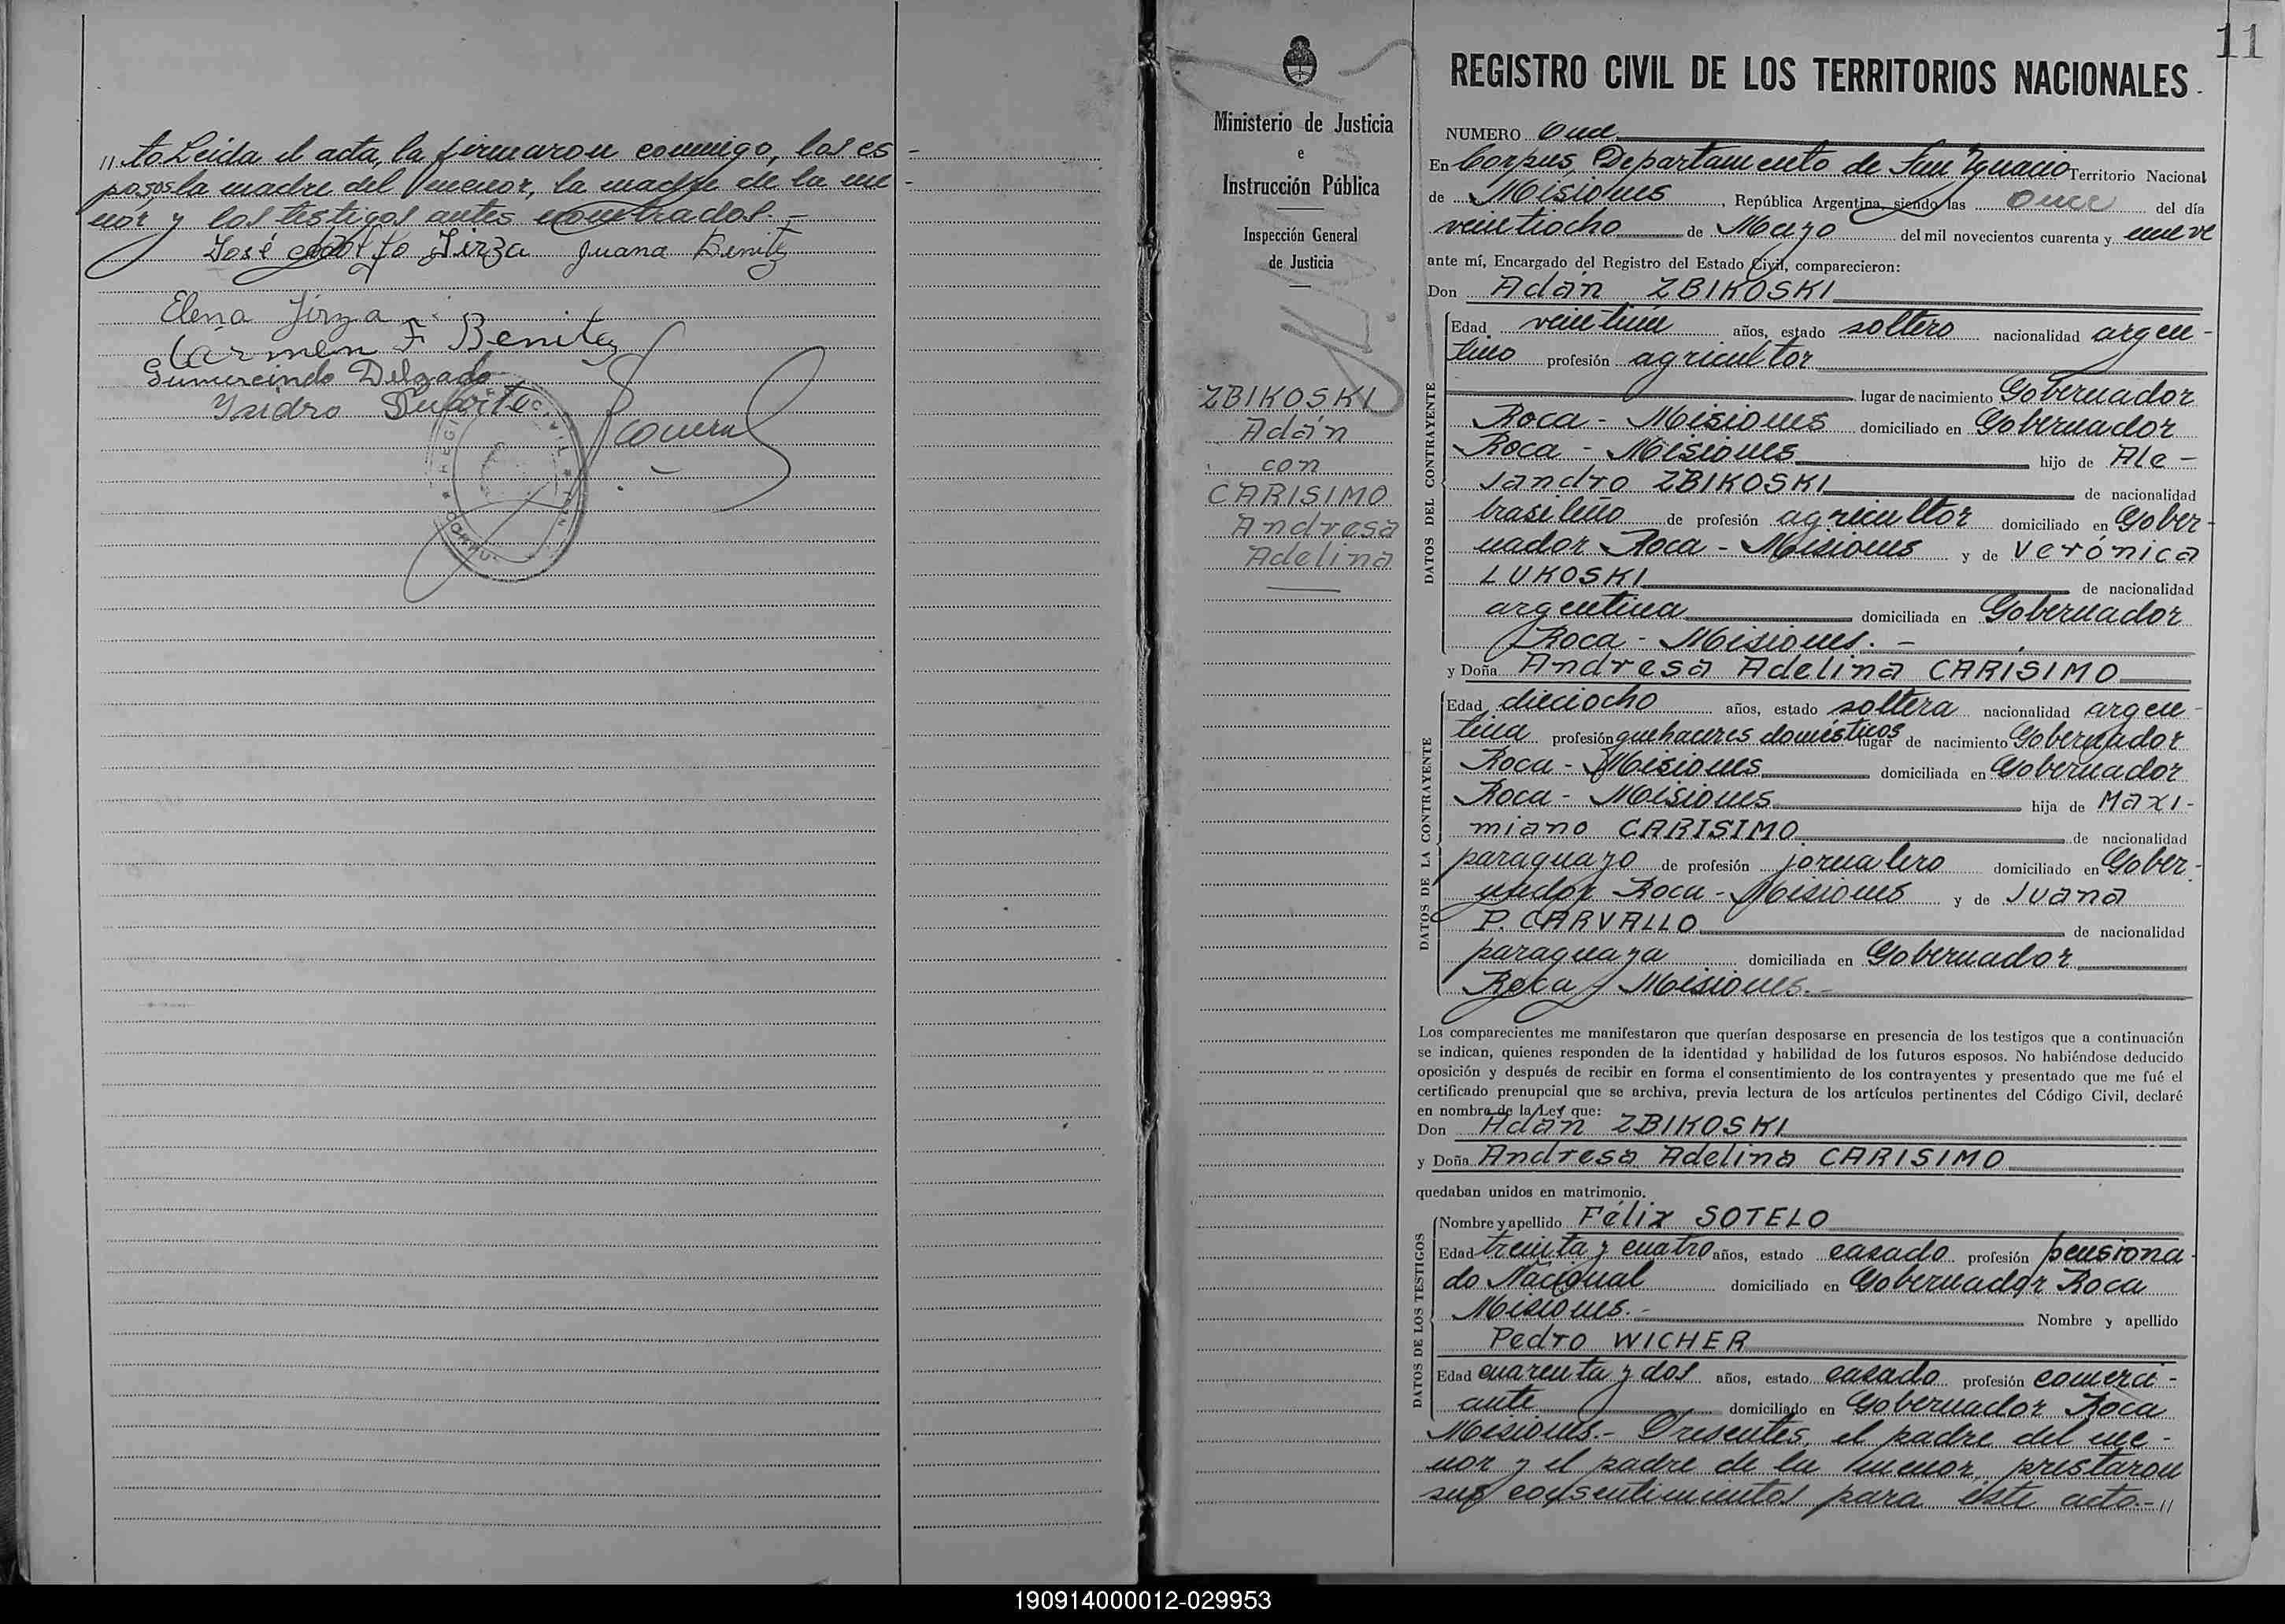 // to Leida el acta, la firmaron conmigo, los es
posos, la madre del menor, la madre de la me
nor y los testigos antes nombrados.-
José Jirza Juana Benitez
Elena Jirza
Carmen F Benitez
Gumercindo Delgado
Ysidro Duarte
11
Ministerio de Justicia
e
Instrucción Pública
Inspección General
de Justicia
ZBIKOSKI
Adán
con
CARISIMO
Andresa
Adelina
REGISTRO CIVIL DE LOS TERRITORIOS NACIONALES
NUMERO Once
En Corpus, Departamento de San Ignacio Territorio Nacional
de Misiones, República Argentina, siendo las once del día
veintiocho de Mayo del mil novecientos cuarenta y nueve
ante mí, Encargado del Registro del Estado Civil, comparecieron:
Don Adán ZBIKOSKI
DATOS DEL CONTRAYENTE
Edad veintiún años, estado soltero nacionalidad argen-
tino profesión agricultor
lugar de nacimiento Gobernador
Roca - Misiones domiciliado en Gobernador
Roca - Misiones hijo de Ale-
jandro ZBIKOSKI de nacionalidad
brasileño de profesión agricultor domiciliado en Gober-
nador Roca - Misiones y de Verónica
LUKOSKI de nacionalidad
argentina domiciliada en Gobernador
Roca - Misiones.-
y Doña Andresa Adelina CARISIMO
DATOS DE LA CONTRAYENTE
Edad dieciocho años, estado soltera nacionalidad argen-
tina profesión quehaceres domésticos lugar de nacimiento Gobernador
Roca - Misiones domiciliada en Gobernador
Roca - Misiones hija de Maxi-
miano CARISIMO de nacionalidad
paraguayo de profesión jornalero domiciliado en Gober-
nador Roca - Misiones y de Juana
P. CARVALLO de nacionalidad
paraguaya domiciliada en Gobernador
Roca - Misiones.-
Los comparecientes me manifestaron que querían desposarse en presencia de los testigos que a continuación
se indican, quienes responden de la identidad y habilidad de los futuros esposos. No habiéndose deducido
oposición y después de recibir en forma el consentimiento de los contrayentes y presentado que me fué el
certificado prenupcial que se archiva, previa lectura de los artículos pertinentes del Código Civil, declaré
en nombre de la Ley que:
Don Adán ZBIKOSKI
y Doña Andresa Adelina CARISIMO
quedaban unidos en matrimonio.
DATOS DE LOS TESTIGOS
Nombre y apellido Félix SOTELO
Edad treinta y cuatro años, estado casado profesión pensiona-
do Nacional domiciliado en Gobernador Roca
Misiones.- Nombre y apellido
Pedro WICHER
Edad cuarenta y dos años, estado casado profesión comerci-
ante domiciliado en Gobernador Roca
Misiones.- Presentes, el padre del me-
nor y el padre de la menor, prestaron
sus consentimientos para éste acto.-//
190914000012-029953